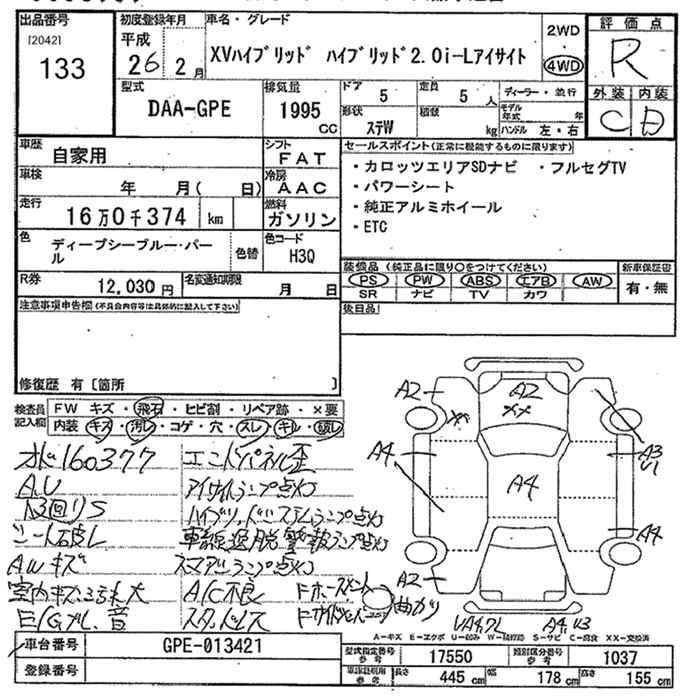 出品番号
[2042]
133
初度登録年月
平成
26 2月
車名・グレード
XVハイブリッド ハイブリッド2.0i-Lアイサイト
2WD
4WD
評価点
R
型式
DAA-GPE
排気量
1995
CC
ドア
5
形状
ステW
定員
5 人
積載
kg
ディーラー・並行
モデル年式 年
ハンドル 左・右
外装 内装
C D
車歴
自家用
シフト
FAT
車検
年 月( 日)
冷房
AAC
走行
16万0千374 km
燃料
ガソリン
色
ディープシーブルー・パール
色替
色コード
H3Q
R券
12,030円
名変通知期限
月 日
セールスポイント(正常に機能するものに限ります)
・カロッツエリアSDナビ ・フルセグTV
・パワーシート
・純正アルミホイール
・ETC
装備品 (純正品に限り○をつけてください)
PS PW ABS エアB AW
SR ナビ TV カワ
新車保証書
有・無
注意事項申告欄(不具合内容等は具体的に記入して下さい)
後日品
修復歴 有 [箇所 ]
検査員記入欄
FW キズ・飛石・ヒビ割・リペア跡・×要
内装・キズ・汚レ・コゲ・穴・スレ・キレ・破レ
160377
AU
シート破レ
AWキズ
エンドパネル歪
アイサイトランプ点灯
ハイブリッドシステムランプ点灯
車線逸脱警報ランプ点灯
A/C不良
スタッドレス
曲ガリ
A2
A2
XX
A4
A4
A3
U1
A4
A2
A4, U3
A-キズ E-エクボ U-凹み W-補修跡 S-サビ C-腐食 XX-交換済
車台番号
GPE-013421
登録番号
型式指定番号
参考
17550
類別区分番号
参考
1037
車検証明用
参考
長さ
445 cm
幅
178 cm
高さ
155 cm